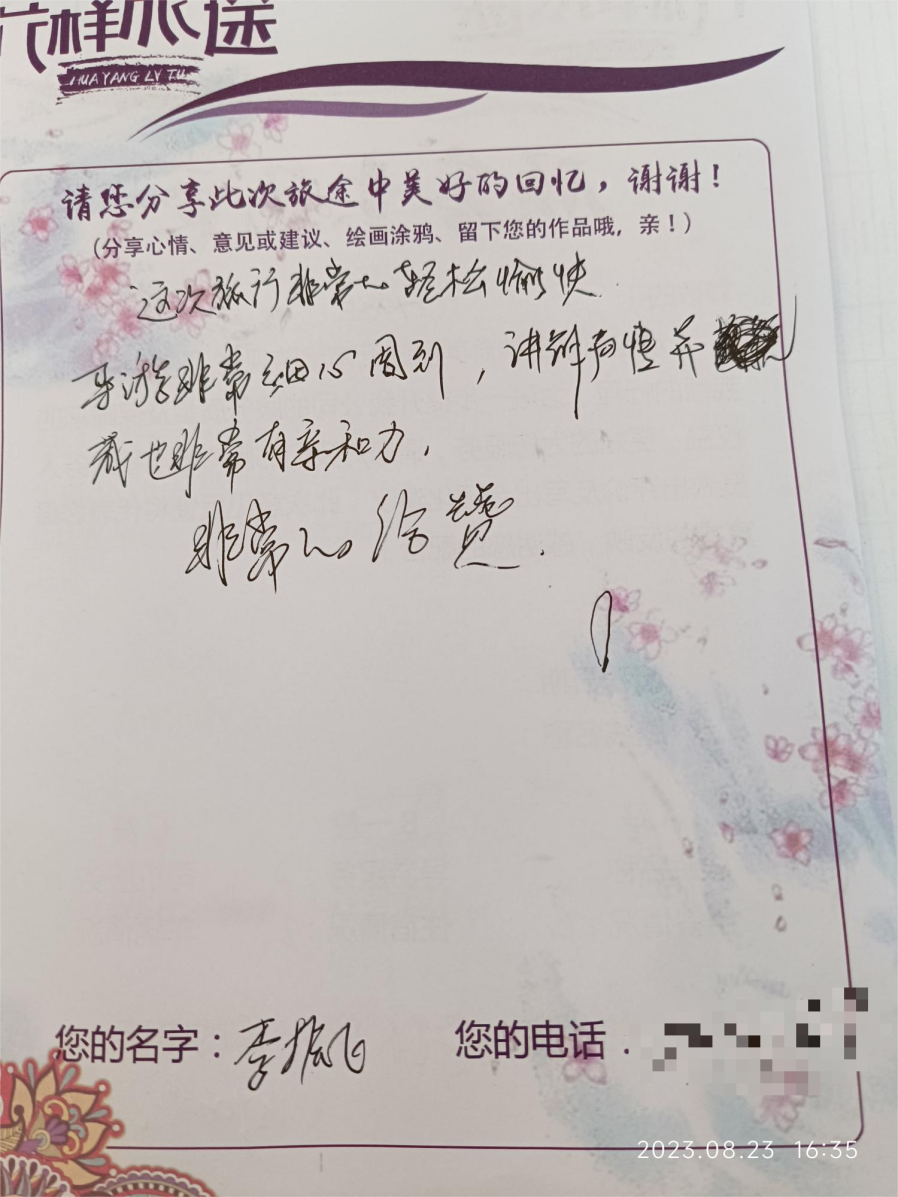 花样旅途
HUA YANG LV TU
请您分享此次旅途中美好的回忆，谢谢！
（分享心情、意见或建议、绘画涂鸦、留下您的作品哦，亲！）
这次旅行非常的轻松愉快
导游非常细心周到，讲解有情并
茂也非常有亲和力.
非常的给赞.
您的名字：李振飞
您的电话：
2023.08.23 16:35